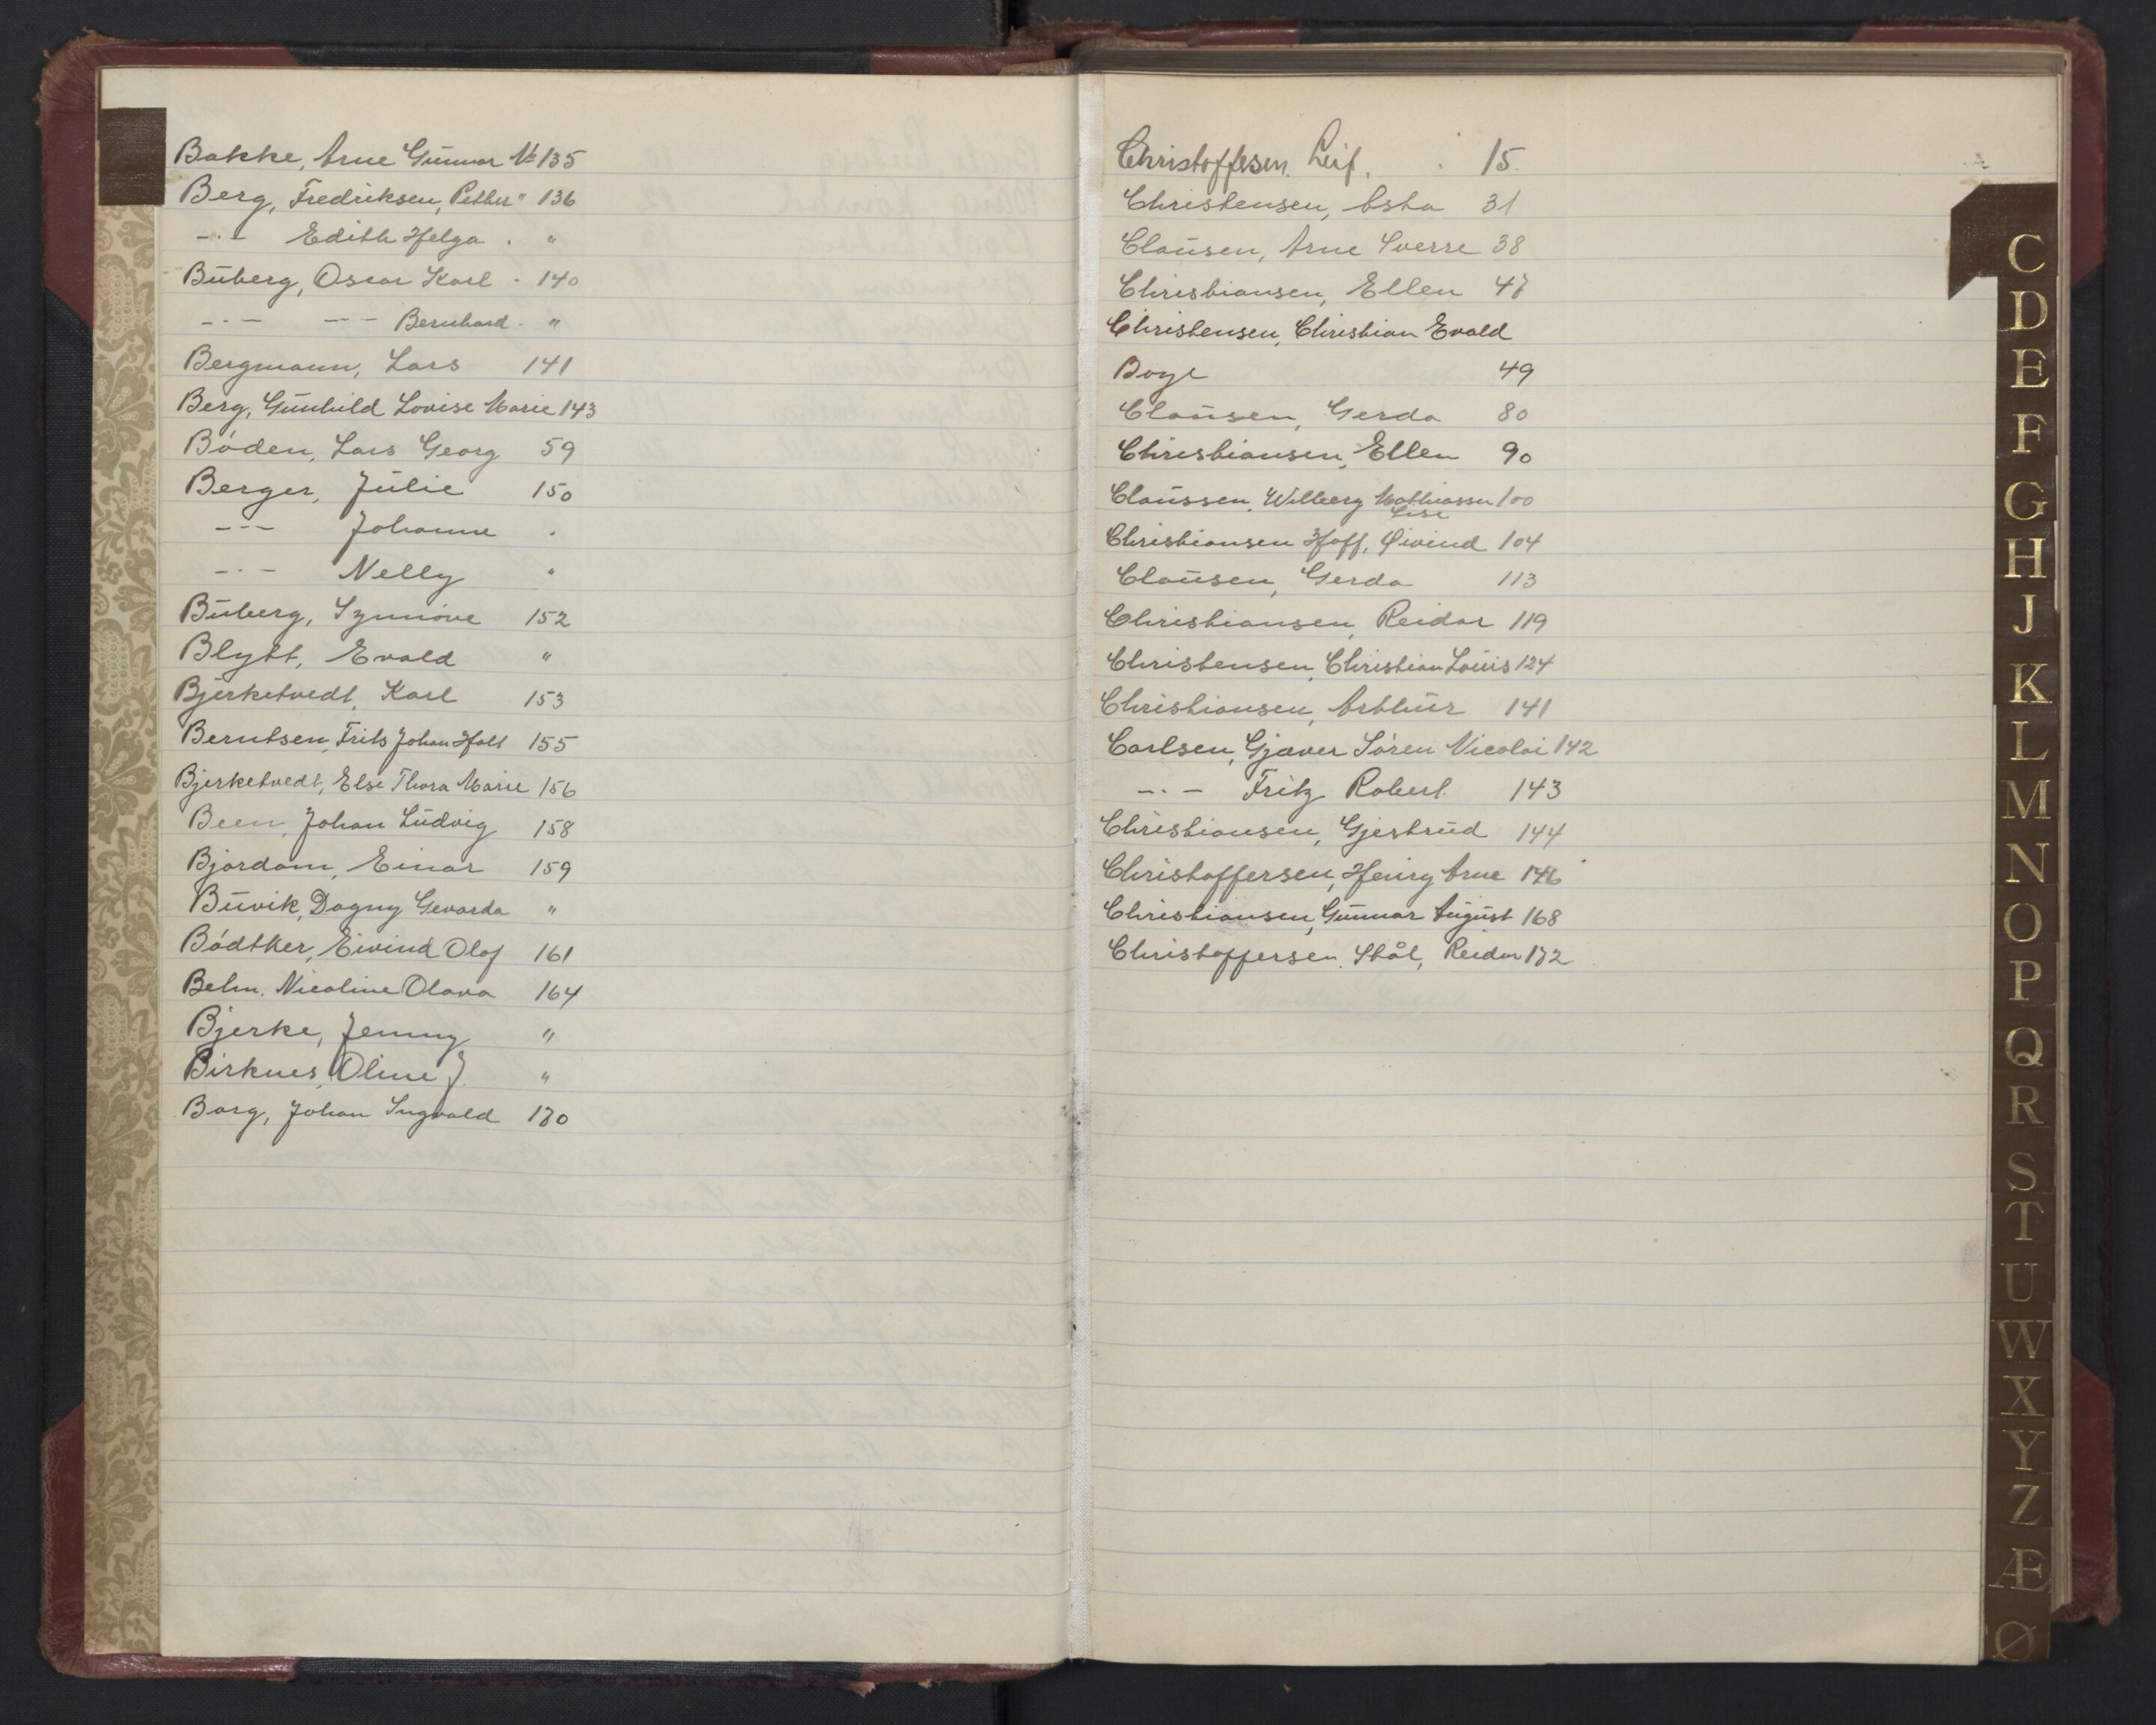 Bakke, Arne Gunnar № 135
Berg, Fredriksen, Petter " 136
-·- Edith Helga . "
Buberg, Oscar Karl - 140
-·- --- Bernhard . "
Bergmann, Lars 141
Berg, Gunhild Lovise Marie 143
Bøden, Lars Georg 59
Berger, Julie 150
--- Johanne "
-·- Nelly "
Buberg, Synnøve 152
Blytt, Evald "
Bjerketvedt, Karl 153
Berntsen, Frits Johan Holt 155
Bjerketvedt, Else Thora Marie 156
Been, Johan Ludvig 158
Bjordam, Einar 159
Buvik, Dagny Gevarda "
Bødtker, Eivind Olaf 161
Behn, Nicoline Olava 164
Bjerke, Jenny "
Birknes, Oline J. "
Borg, Johan Ingvald 170
Christoffesen. Leif. 15.
Christensen, Asta 31
Clausen, Arne Sverre 38
Christiansen, Ellen 47
Christensen, Christian Evald
Boye 49
Clausen, Gerda 80
Christiansen, Ellen 90
Claussen, Willberg Mathiassen 100
Lise
Christiansen Hoff, Øivind 104
Clausen, Gerda 113
Christiansen, Reidar 119
Christensen, Christian Louis 124
Christiansen, Arthur 141
Carlsen, Gjæver Søren Nicolai 142
-·- Fritz Robert 143
Christiansen, Gjertrud 144
Christoffersen, Henry Arne 146
Christiansen, Gunnar August 168
Christoffersen, Stål, Reidar 172
C
D
E
F
G
H
J
K
L
M
N
O
P
Q
R
S
T
U
W
X
Y
Z
Æ
Ø